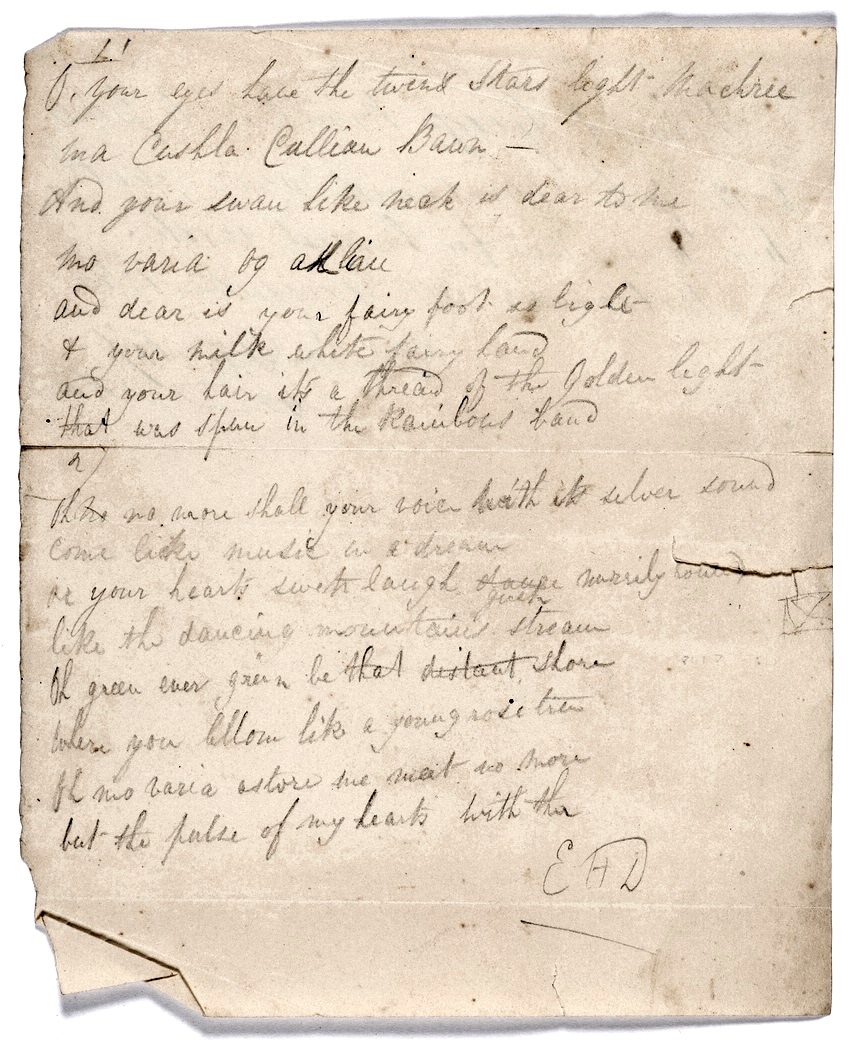 1!
O, your eyes have the twin stars light Machree
ma Cushla Cullian Bawn —
And your swan like neck is dear to me
mo varia og
and dear is your fairy foot so light
& your milk white fairy hand
and your hair its a thread of the Golden light
that was spun in the Rainbows band
2)
Oh no no more shall your voice with its silver sound
come like music in a dream
or your hearts sweet laugh dance gush merrily round
like the dancing mountains stream
Oh green ever green be that distant shore
where you bloom like a young rose tree
Oh mo varia astore we meet no more
but the pulse of my hearts with the
E H D